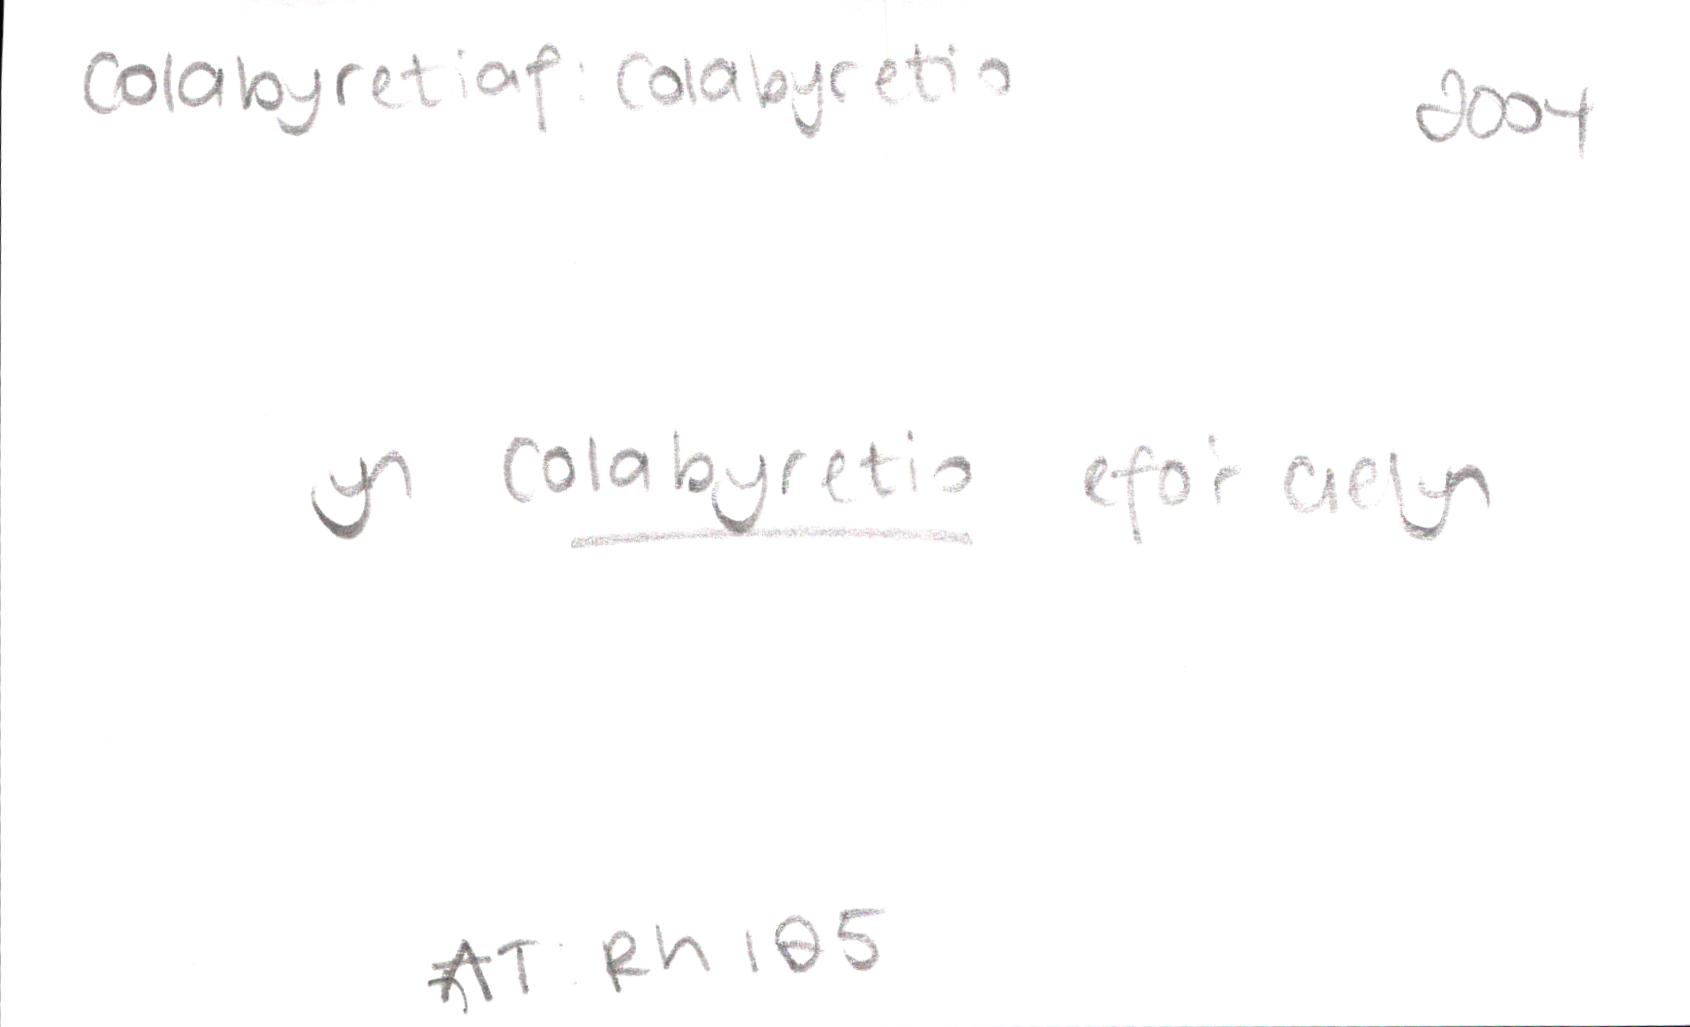 Colabyretiaf: Colabyretio 2004
yn Colabyretio efo'r aelyn
AT: Rh 105